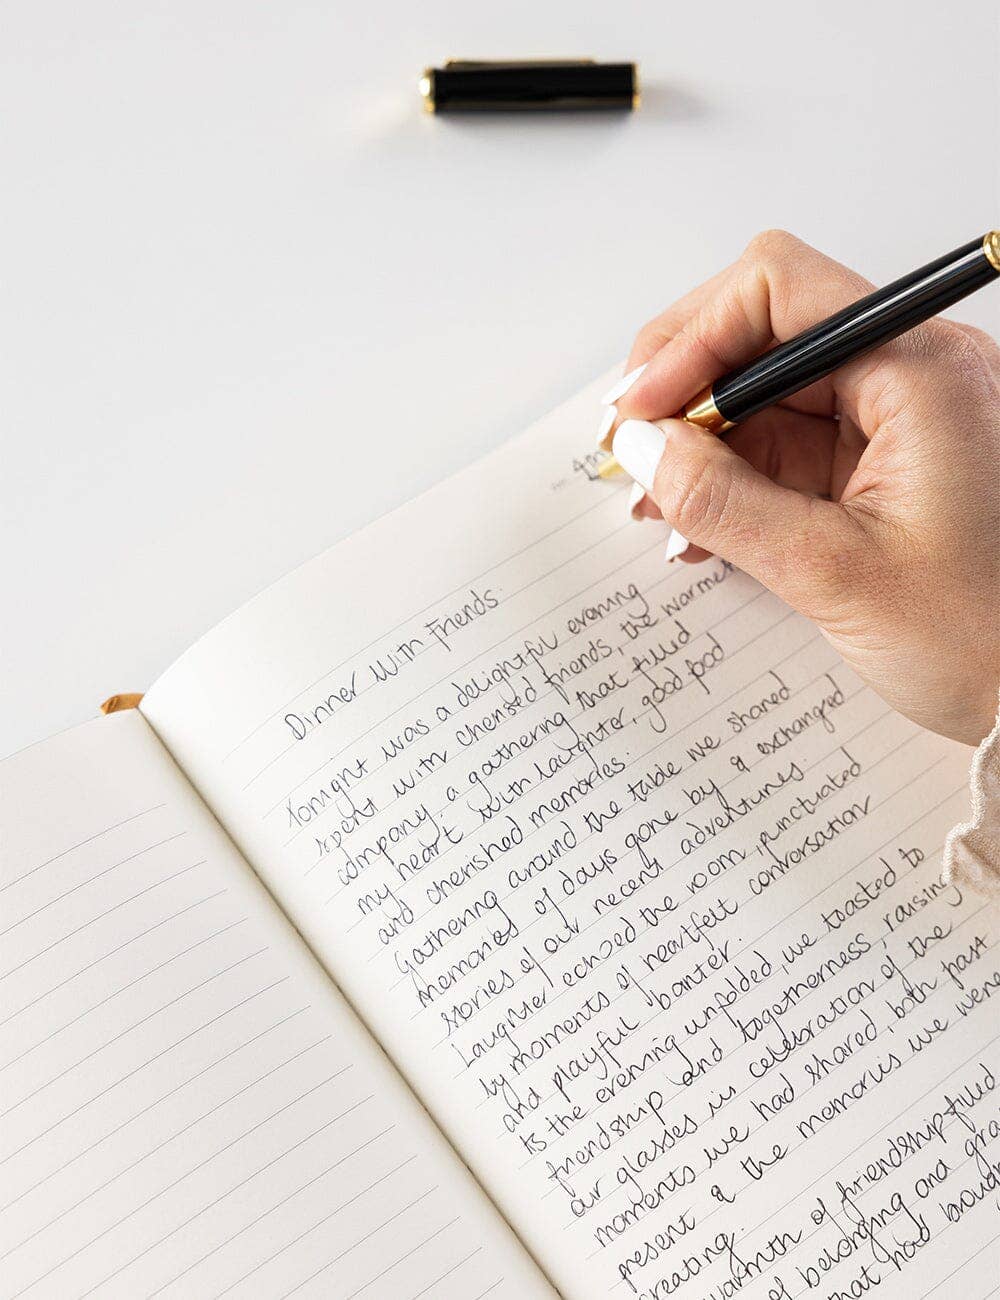 Dinner With Friends.
Tonight was a delightful evening
spent with cherised friends, the
company, a gathering that filled
my heart with laughter, good food
and cherished memories.
Gathering around the table we shared
memories of days gone by & exchanged
stories of our recent adventures.
Laughter echoed the room, punctuated
by moments of heartfelt conversation
and playful banter.
As the evening unfolded, we toasted to
friendship and togetherness, raising
our glasses in celebration of the
moments we had shared, both past
present & the memories we were
creating.
warmth of friendship filled
of belonging and
that had